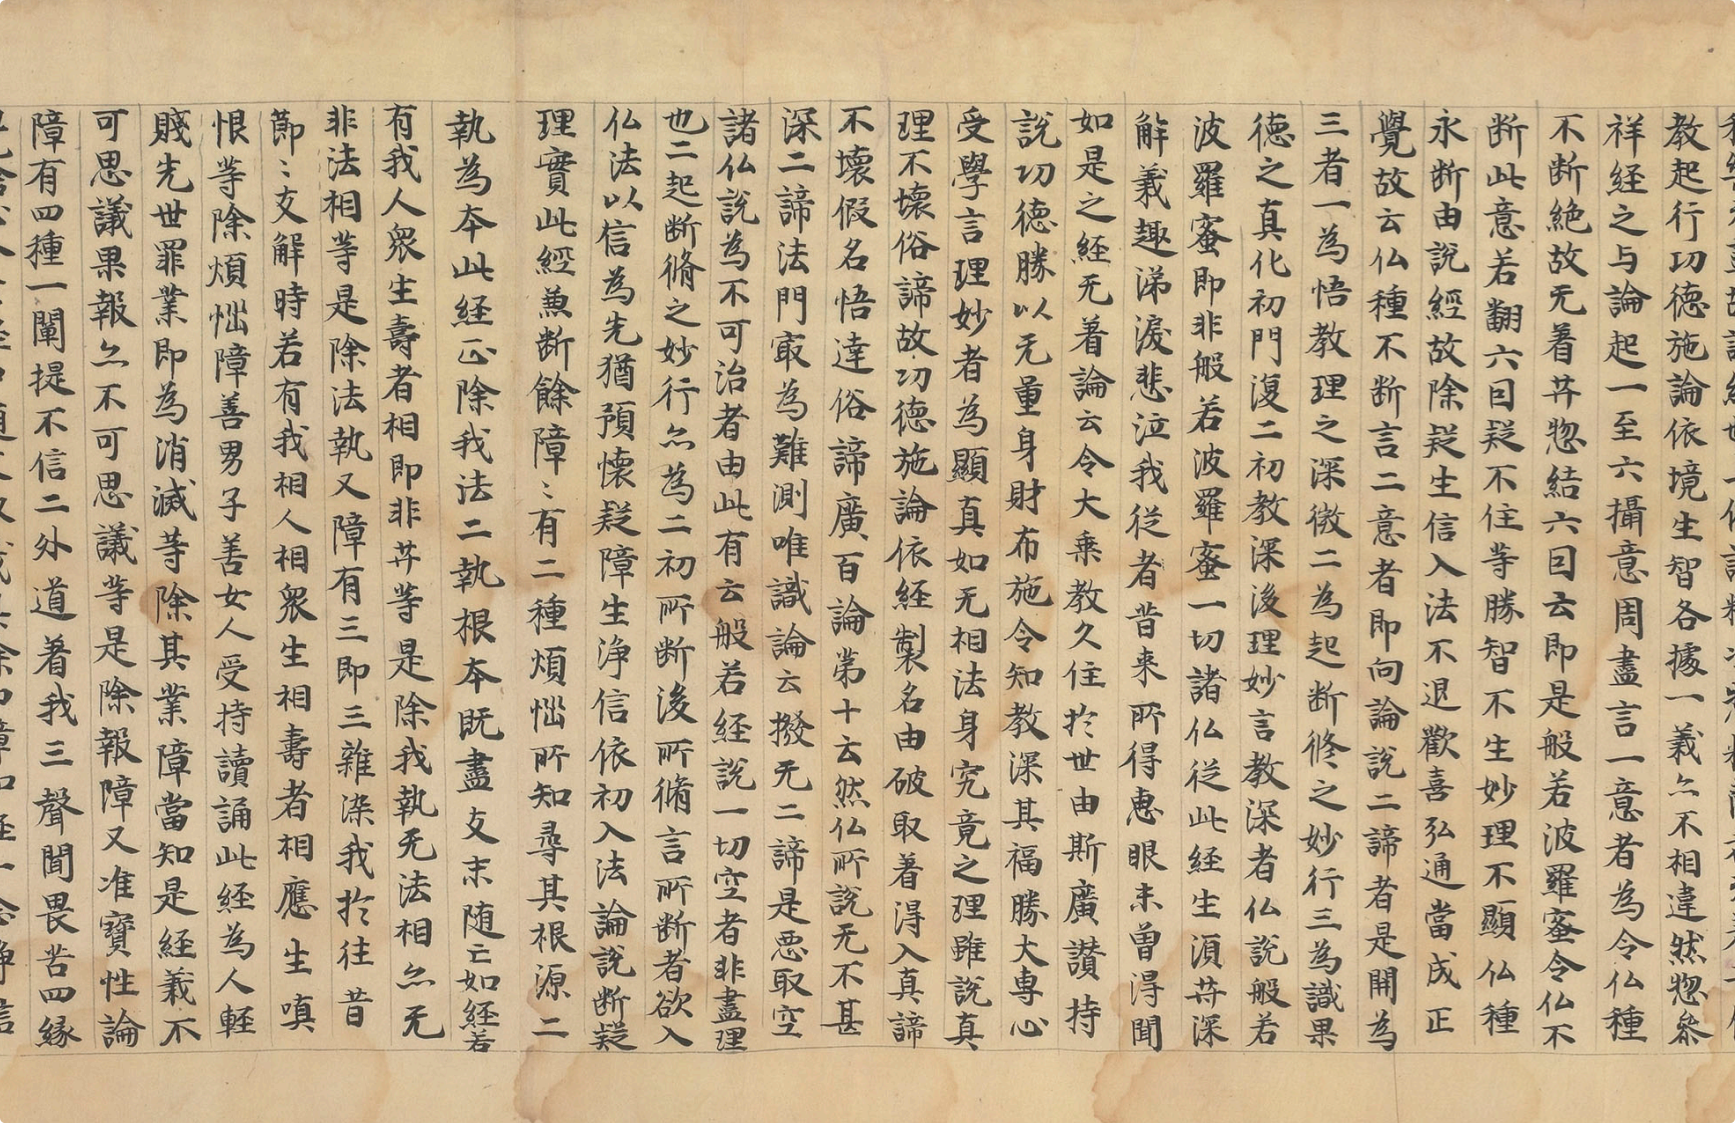 教起行功德施論依境生智各據一義亦不相違然惣叅
祥経之与論起一至六攝意周盡言一意者為令仏種
不断絶故无著菩惣結六目云即是般若波羅蜜令仏不
断此意若翻六目疑不住等勝智不生妙理不顯仏種
永断由說經故除疑生信入法不退歡喜弘通當成正
覺故云仏種不断言二意者即向論説二諦者是開為
三者一為悟教理之深微二為起断修之妙行三為識果
德之真化初門復二初教深後理妙言教深者仏說般若
波羅蜜即非般若波羅蜜一切諸仏從此経生須菩深
解義趣涕淚悲泣我從昔来所得惠眼未曾得聞
如是之経无著論云令大乗教久住於世由斯廣讃持
說功德勝以无量身財布施令知教深其福勝大專心
受學言理妙者為顯真如无相法身究竟之理雖說真
理不壞俗諦故功德施論依経製名由破取著得入真諦
不壞假名悟達俗諦廣百論第十云然仏所說无不甚
深二諦法門㝡為難測唯識論云撥无二諦是惡取空
諸仏說為不可治者由此有云般若経說一切空者非盡理
也二起断脩之妙行亦為二初所断後所脩言所断者欲入
仏法以信為先猶預懷疑障生淨信依初入法論説断疑
理實此經兼断餘障〻有二種煩惱所知尋其根源二
執為本此経正除我法二執根本既盡支末随亡如経若
有我人衆生壽者相即非菩等是除我執无法相亦无
非法相等是除法執又障有三即三雜染我於往昔
節〻支解時若有我相人相衆生相壽者相應生嗔
恨等除煩惱障善男子善女人受持讀誦此経為人輕
賤先世罪業即為消滅等除其業障當知是経義不
可思議果報亦不可思議等是除報障又准寶性論
障有四種一闡提不信二外道著我三聲聞畏苦四緣